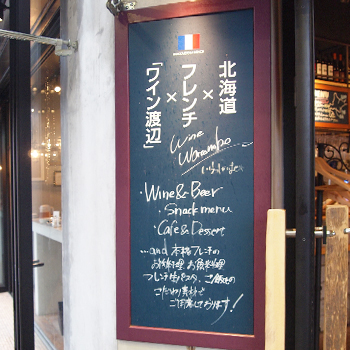 北海道
×
フレンチ
×
「ワイン渡辺」
Wine
Watanabe
・Wine & Beer
・Snack menu
・Cafe & Dessert
...and 本格フレンチの
お魚料理 お肉料理
フレンチ
こだわり素材で
ご用意しております!